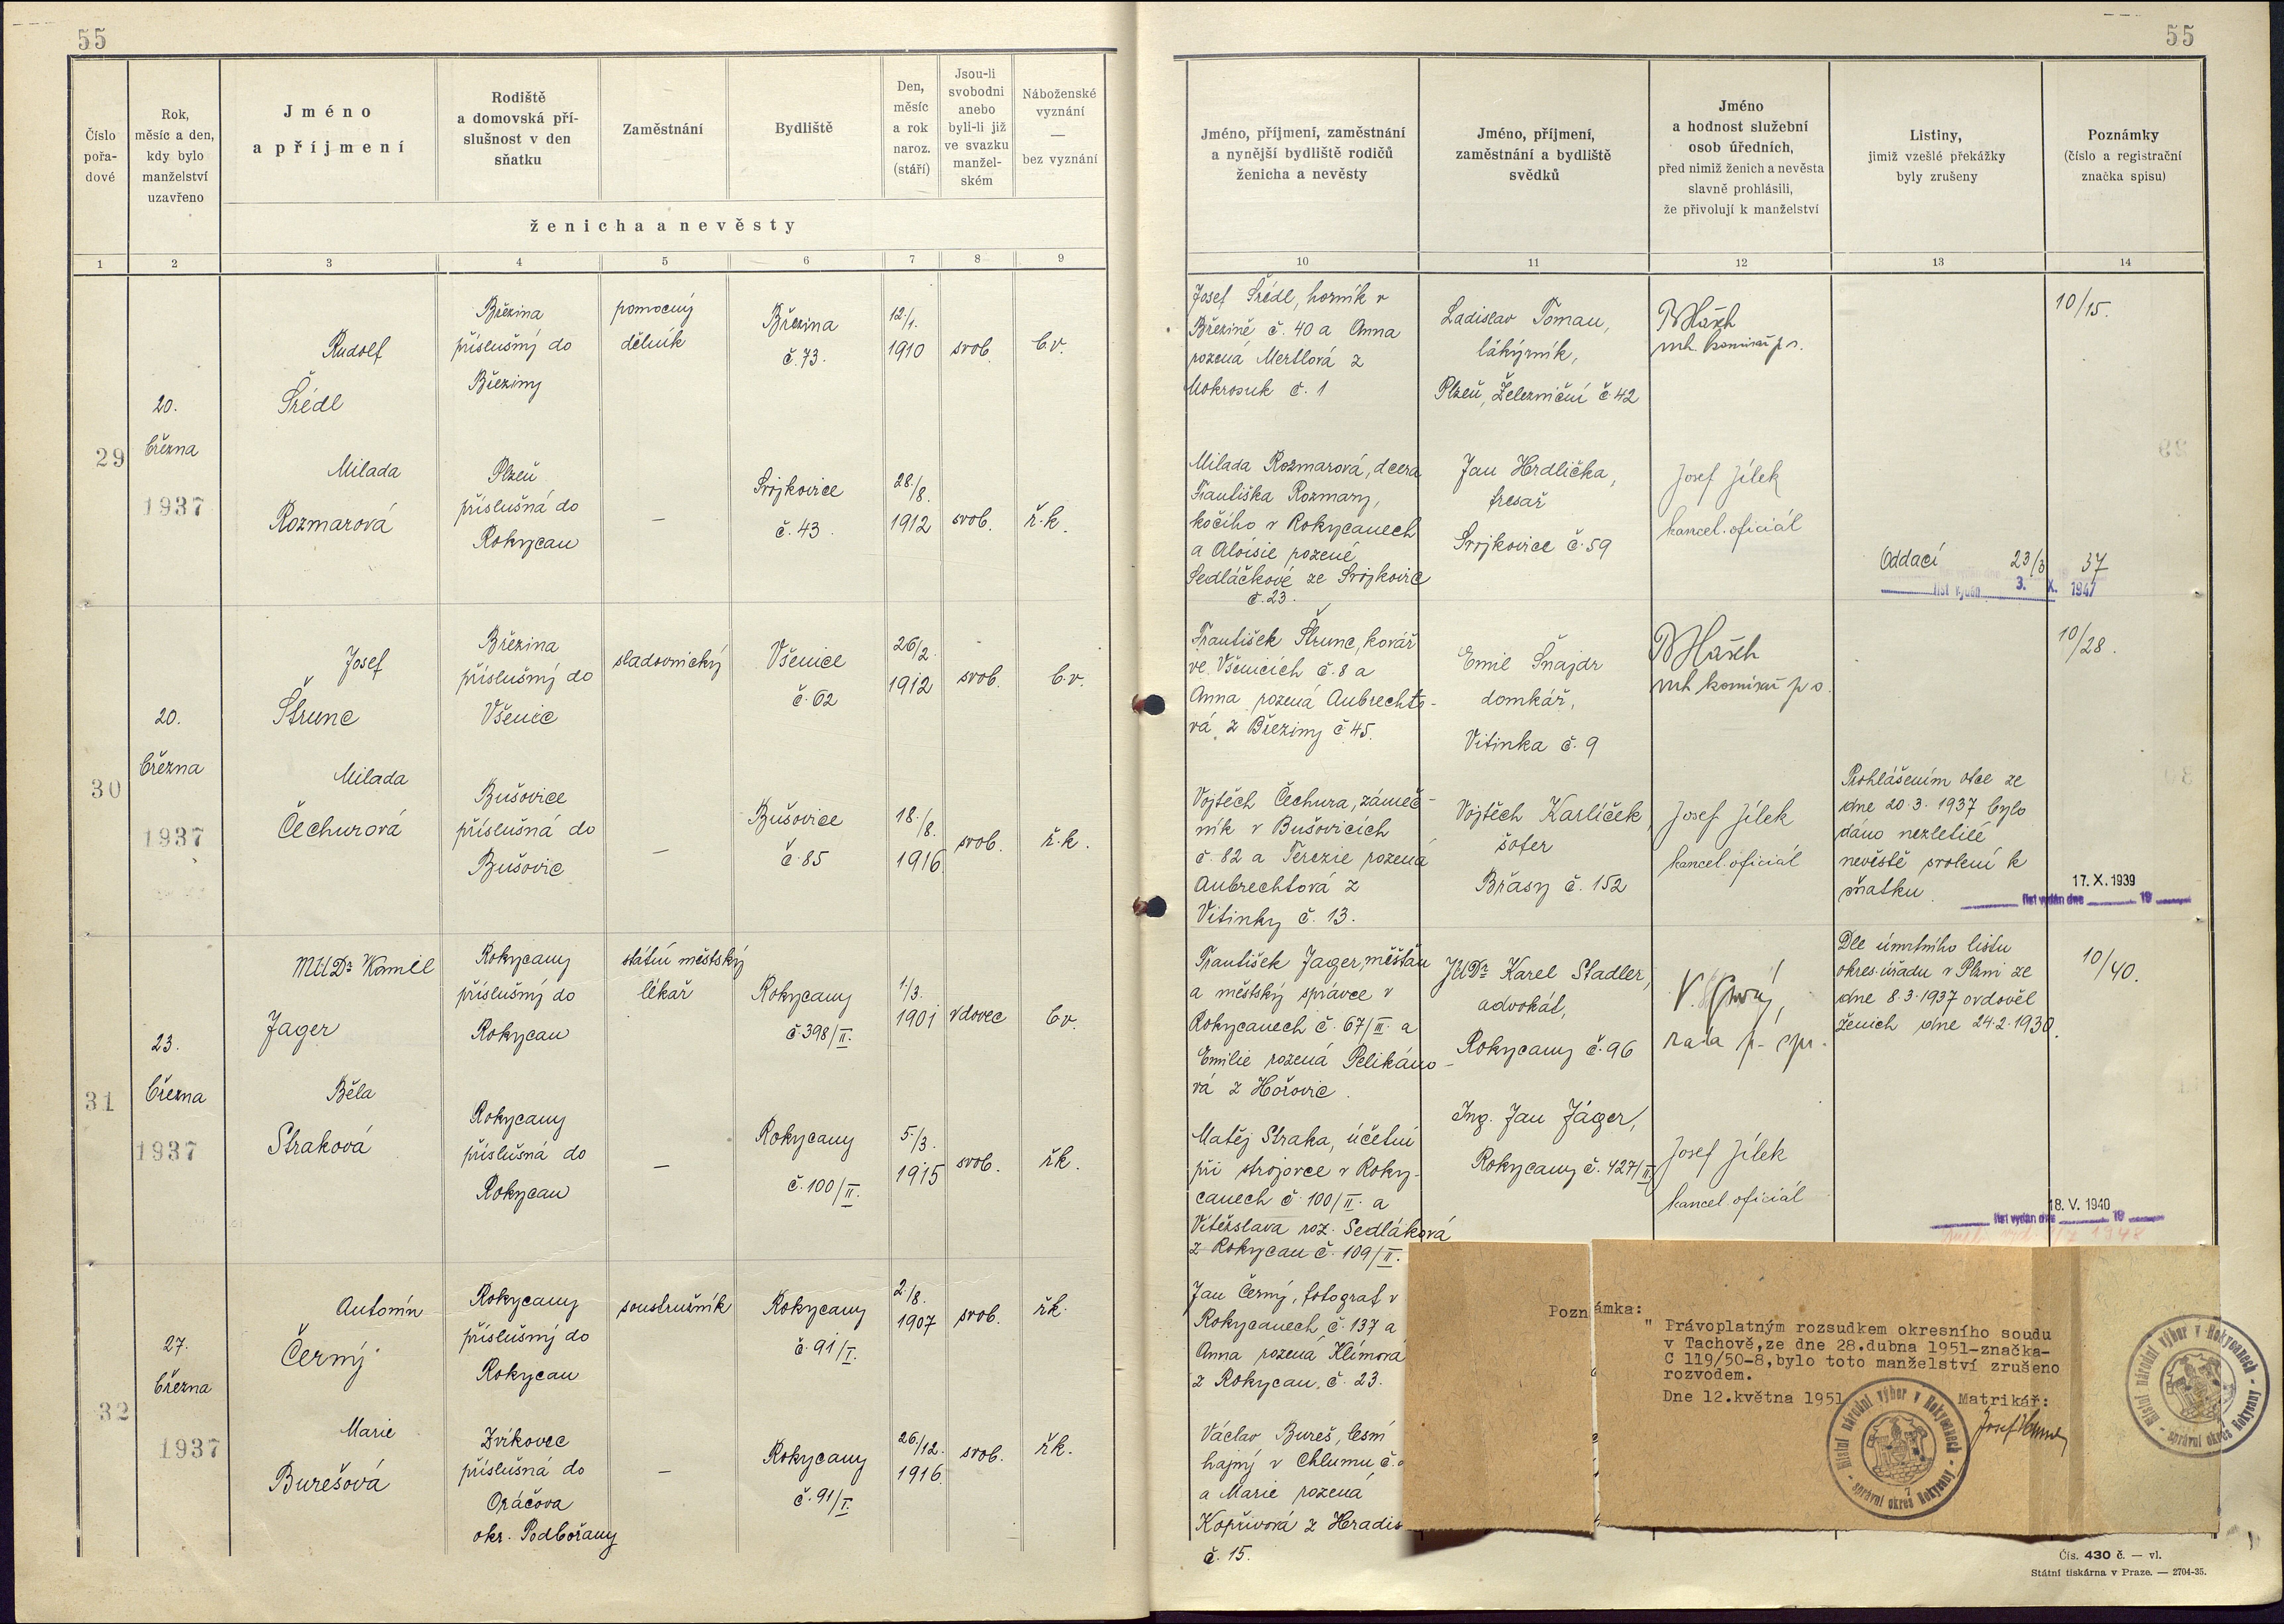 55
55
Číslo
pořa-
dové
Rok,
měsíc a den,
kdy bylo
manželství
uzavřeno
Jméno
a příjmení
Rodiště
a domovská pří-
slušnost v den
sňatku
Zaměstnání
Bydliště
Den,
měsíc
a rok
naroz.
(stáří)
Jsou-li
svobodni
anebo
byli-li již
ve svazku
manžel-
ském
Náboženské
vyznání
—
bez vyznání
ženicha a nevěsty
Jméno, příjmení, zaměstnání
a nynější bydliště rodičů
ženicha a nevěsty
Jméno, příjmení,
zaměstnání a bydliště
svědků
Jméno
a hodnost služební
osob úředních,
před nimiž ženich a nevěsta
slavně prohlásili,
že přivolují k manželství
Listiny,
jimiž vzešlé překážky
byly zrušeny
Poznámky
(číslo a registrační
značka spisu)
1 2 3 4 5 6 7 8 9 10 11 12 13 14
29
20.
března
1937
Rudolf
Šrédl
Březina
příslušný do
Březiny
pomocný
dělník
Březina
č. 73.
12./1.
1910
svob.
b.v.
Milada
Rozmarová
Plzeň
příslušná do
Rokycan
—
Svojkovice
č. 43.
28./8.
1912
svob.
ř.k.
Josef Šrédl, horník v
Březině č. 40 a Anna
rozená Mertlová z
Mokrosuk č. 1
Milada Rozmarová, dcera
Františka Rozmary,
kočího v Rokycanech
a Aloisie rozené
Sedláčkové ze Svojkovic
č. 23.
Ladislav Toman,
lakýrník,
Plzeň, Železniční č. 42
Jan Hrdlička,
fresař
Svojkovice č. 59
Josef Jílek
kancel. oficiál
Oddací 23/3 37
list vydán 3. X. 1947
10/15.
30
20.
března
1937
Josef
Štrunc
Březina
příslušný do
Všenic
sladovnický
Všenice
č. 62
26/2.
1912
svob.
b.v.
Milada
Čechurová
Bušovice
příslušná do
Bušovic
—
Bušovice
č. 85
18./8.
1916
svob.
ř.k.
František Štrunc, kovář
ve Všenicích č. 8 a
Anna rozená Aubrechto-
vá z Březiny č. 45.
Vojtěch Čechura, zámeč-
ník v Bušovicích
č. 82 a Terezie rozená
Aubrechtová z
Vitinky č. 13.
Emil Šnajdr
domkář,
Vitinka č. 9
Vojtěch Karlíček
šofer
Břasy č. 152
Josef Jílek
kancel. oficiál
Prohlášením otce ze
dne 20.3.1937 bylo
dáno nezletilé
nevěstě svolení k
sňatku.
17. X. 1939
list vydán dne 19
10/28.
31
23.
března
1937
MUDr Kamil
Jager
Rokycany
příslušný do
Rokycan
státní městský
lékař
Rokycany
č. 398/II.
1./3.
1901
vdovec
b.v.
Běla
Straková
Rokycany
příslušná do
Rokycan
—
Rokycany
č. 100/II.
5./3.
1915
svob.
ř.k.
František Jager, měšťan
a městský správce v
Rokycanech č. 67/II. a
Emilie rozená Pelikáno-
vá z Hořovic.
Matěj Straka, účetní
při strojovce v Roky-
canech č. 100/II. a
Vítězslava roz. Sedláková
z Rokycan č. 109/II.
JUDr Karel Stadler,
advokát,
Rokycany č. 96
Ing. Jan Jäger,
Rokycany č. 427/II
rada p. spr.
Josef Jílek
kancel. oficiál
Dle úmrtního listu
okres. úřadu v Plzni ze
dne 8.3.1937 ovdověl
ženich dne 24.2.1930.
18. V. 1940
list vydán dne 19
10/40.
32
27.
března
1937
Antonín
Černý
Rokycany
příslušný do
Rokycan
soustružník
Rokycany
č. 91/I.
2./8.
1907
svob.
řk.
Marie
Burešová
Zvíkovec
příslušná do
Oráčova
okr. Podbořany
—
Rokycany
č. 91/I.
26/12.
1916.
svob.
řk.
Jan Černý, fotograf v
Rokycanech č. 137 a
Anna rozená Klímová
z Rokycan, č. 23.
Václav Bureš, lesní
hajný v Chlumu č.
a Marie rozená
Kopřivová z Hradis
č. 15.
Poznámka:
" Právoplatným rozsudkem okresního soudu
v Tachově,ze dne 28.dubna 1951-značka-
C 119/50-8,bylo toto manželství zrušeno
rozvodem.
Dne 12.května 1951
Matrikář:
Místní národní výbor v Rokycanech - správní okres Rokycany -
7
Místní národní výbor v Rokycanech - správní okres Rokycany -
7
Čís. 430 č. — vl.
Státní tiskárna v Praze. — 2704-35.